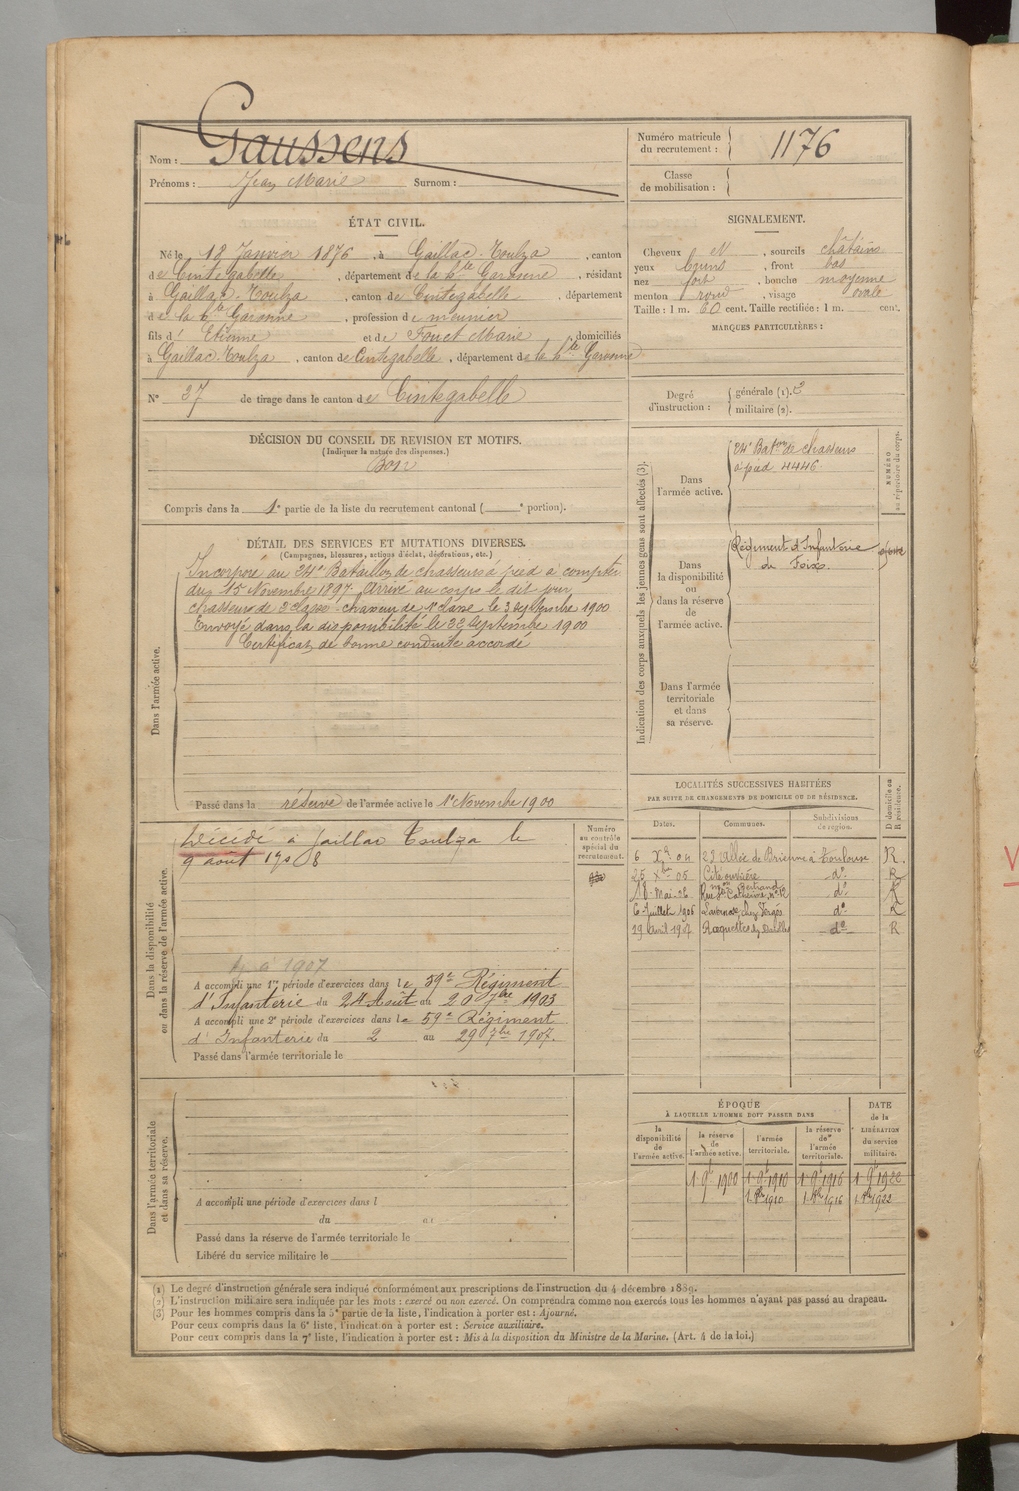 Nom : Gaussens
Prénoms : Jean Marie Surnom :
Numéro matricule
du recrutement : 1176
Classe
de mobilisation :
ÉTAT CIVIL.
Né le 18 Janvier 1876, à Gaillac-Toulza, canton
de Cintegabelle, département de la hte Garonne, résidant
à Gaillac-Toulza, canton de Cintegabelle, département
de la hte Garonne, profession de meunier
fils d' Etienne et de Fouet Marie, domiciliés
à Gaillac-Toulza, canton de Cintegabelle, département de la hte Garonne
N° 37 de tirage dans le canton de Cintegabelle
SIGNALEMENT.
Cheveux et, sourcils châtains
yeux bruns, front bas
nez fort, bouche moyenne
menton rond, visage ovale
Taille : 1 m. 60 cent. Taille rectifiée : 1 m. cent.
MARQUES PARTICULIÈRES :
Degré
d'instruction :
générale (1). 3
militaire (2).
DÉCISION DU CONSEIL DE REVISION ET MOTIFS.
(Indiquer la nature des dispenses.)
Bon
Compris dans la 1e partie de la liste du recrutement cantonal ( e portion).
DÉTAIL DES SERVICES ET MUTATIONS DIVERSES.
(Campagnes, blessures, actions d'éclat, décorations, etc.)
Dans l'armée active.
Incorporé au 24e Bataillon de chasseurs à pied à compter
du 15 Novembre 1897. Arrivé au corps le dit jour
chasseur de 2 classe - chasseur de 1e classe le 3 septembre 1900
Envoyé dans la disponibilité le 22 Septembre 1900
Certificat de bonne conduite accordé
Passé dans la réserve de l'armée active le 1e Novembre 1900
Indication des corps auxquels les jeunes gens sont affectés (3).
Dans
l'armée active.
24e Baton de chasseurs
à pied 4446
NUMÉRO
au répertoire du corps.
Dans
la disponibilité
ou
dans la réserve
de
l'armée active.
Régiment d'Infanterie
de Foix.
Dans l'armée
territoriale
et dans
sa réserve.
Dans la disponibilité
ou dans la réserve de l'armée active.
Décédé à Gaillac Toulza le
9 août 1908
Numéro
au contrôle
spécial du
recrutement.
à 1907
A accompli une 1re période d'exercices dans le 59e Régiment
d'Infanterie du 24 Août au 20 7bre 1903
A accompli une 2e période d'exercices dans le 59e Régiment
d'Infanterie du 2 au 29 7bre 1907.
Passé dans l'armée territoriale le
LOCALITÉS SUCCESSIVES HABITÉES
PAR SUITE DE CHANGEMENTS DE DOMICILE OU DE RÉSIDENCE.
Dates. Communes. Subdivisions
de région. D domicile ou
R résidence.
6 Xbre 04 23 Allée de Brienne à Toulouse R.
25 Xbre 05 Cité ouvrière do R
18 Mai-06 Rue Ste Catherine, no 12 do R
6 Juillet 1906 Lavernose, chez Sergés do R
19 avril 1907 Roquettes do R
Dans l'armée territoriale
et dans sa réserve.
A accompli une période d'exercices dans l
du au
Passé dans la réserve de l'armée territoriale le
Libéré du service militaire le
ÉPOQUE
À LAQUELLE L'HOMME DOIT PASSER DANS
DATE
de la
LIBÉRATION
du service
militaire.
la
disponibilité
de
l'armée active.
la réserve
de
l'armée active.
l'armée
territoriale.
la réserve
de
l'armée
territoriale.
1 9e 1900 1 9e 1910 1 9e 1916 1 9e 1922
1 8bre 1910 1 8bre 1916 1 8bre 1922
(1) Le degré d'instruction générale sera indiqué conformément aux prescriptions de l'instruction du 4 décembre 1889.
(2) L'instruction militaire sera indiquée par les mots : exercé ou non exercé. On comprendra comme non exercés tous les hommes n'ayant pas passé au drapeau.
(3) Pour les hommes compris dans la 5e partie de la liste, l'indication à porter est : Ajourné.
Pour ceux compris dans la 6e liste, l'indication à porter est : Service auxiliaire.
Pour ceux compris dans la 7e liste, l'indication à porter est : Mis à la disposition du Ministre de la Marine. (Art. 4 de la loi.)